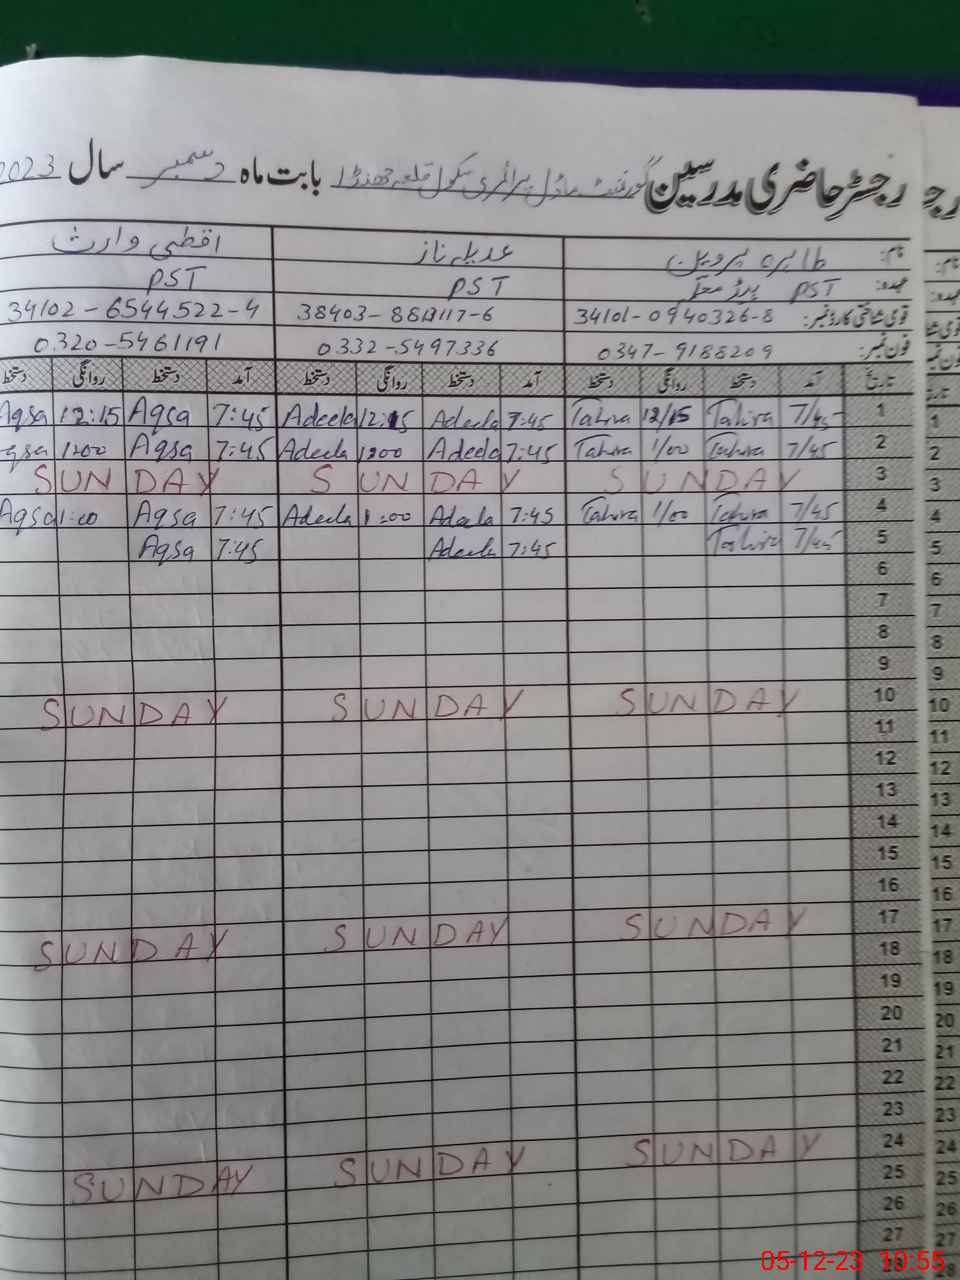 رجسٹر حاضری مدرسین گورنمنٹ ماڈل پرائمری سکول قلعہ جھنڈا بابت ماہ دسمبر سال 2023
نام: طاہرہ پروین عدیلہ ناز اقصٰی وارث
عہدہ: PST PST PST
قومی شناختی کارڈ نمبر: 34101-0940326-8 34102-6544522-4
فون نمبر: 0347-9188209 0332-5497336 0320-5461191
تاریخ آمد دستخط روانگی دستخط آمد دستخط روانگی دستخط آمد دستخط روانگی دستخط
1 7/45 Tahira 12/15 Tahira 7:45 Adeela 12:15 Adeela 7:45 Aqsa 12:15 Aqsa
2 7/45 Tahira 1/00 Tahira 7:45 Adeela 1:00 Adeela 7:45 Aqsa 1:00 Aqsa
3 SUNDAY SUNDAY SUNDAY
4 7/45 Tahira 1/00 Tahira 7:45 Adeela 1:00 Adeela 7:45 Aqsa 1:00 Aqsa
5 7/45 Tahira 7:45 Adeela 7:45 Aqsa
6
7
8
9
10 SUNDAY SUNDAY SUNDAY
11
12
13
14
15
16
17 SUNDAY SUNDAY SUNDAY
18
19
20
21
22
23
24 SUNDAY SUNDAY SUNDAY
25
26
27
28
05-12-23 10:55